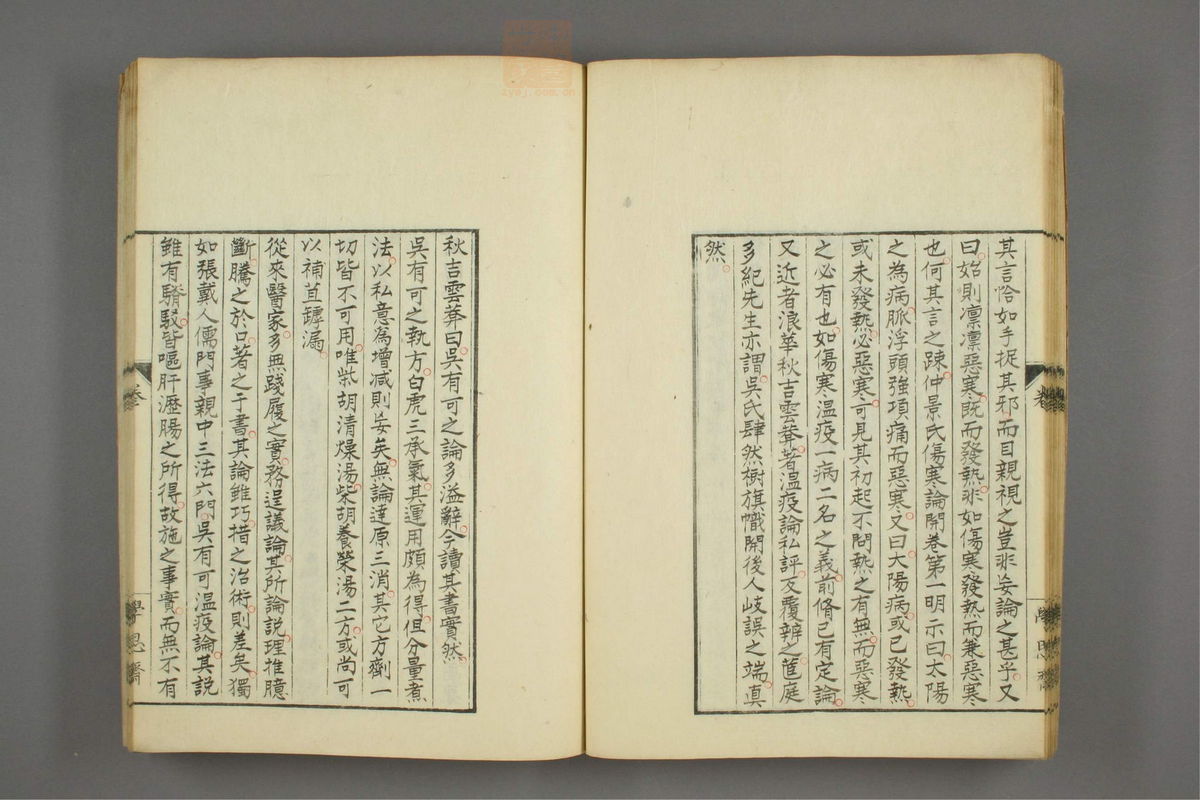 其言恰如手捉其邪而目親視之豈非妄論之甚乎又
曰始則凛凛惡寒既而發熱非如傷寒發熱而兼惡寒
也何其言之疎仲景氏傷寒論開卷第一明示曰太陽
之為病脈浮頭強項痛而惡寒又曰大陽病或已發熱
或未發熱必惡寒可見其初起不問熱之有無而惡寒
之必有也如傷寒溫疫一病二名之義前脩已有定論
又近者浪華秋吉雲莽著溫疫論私評反覆辨之莅庭
多紀先生亦謂吳氏肆然樹旗幟開後人岐誤之端真
然
秋吉雲莽曰吳有可之論多溢辭今讀其書實然
吳有可之執方白虎三承氣其運用頗為得但分量煮
法以私意為增减則妄矣無論達原三消其它方劑一
切皆不可用唯柴胡清燥湯柴胡養榮湯二方或尚可
以補苴罅漏
從來醫家多無踐履之實務逞議論其所論說理推臆
斷騰之於口著之于書其論雖巧措之治術則差矣獨
如張戴人儒門事親中三法六門吳有可溫疫論其說
雖有駁皆嘔肝瀝腸之所得故施之事實而無不有
卷
學思齋
zysj.com.cn